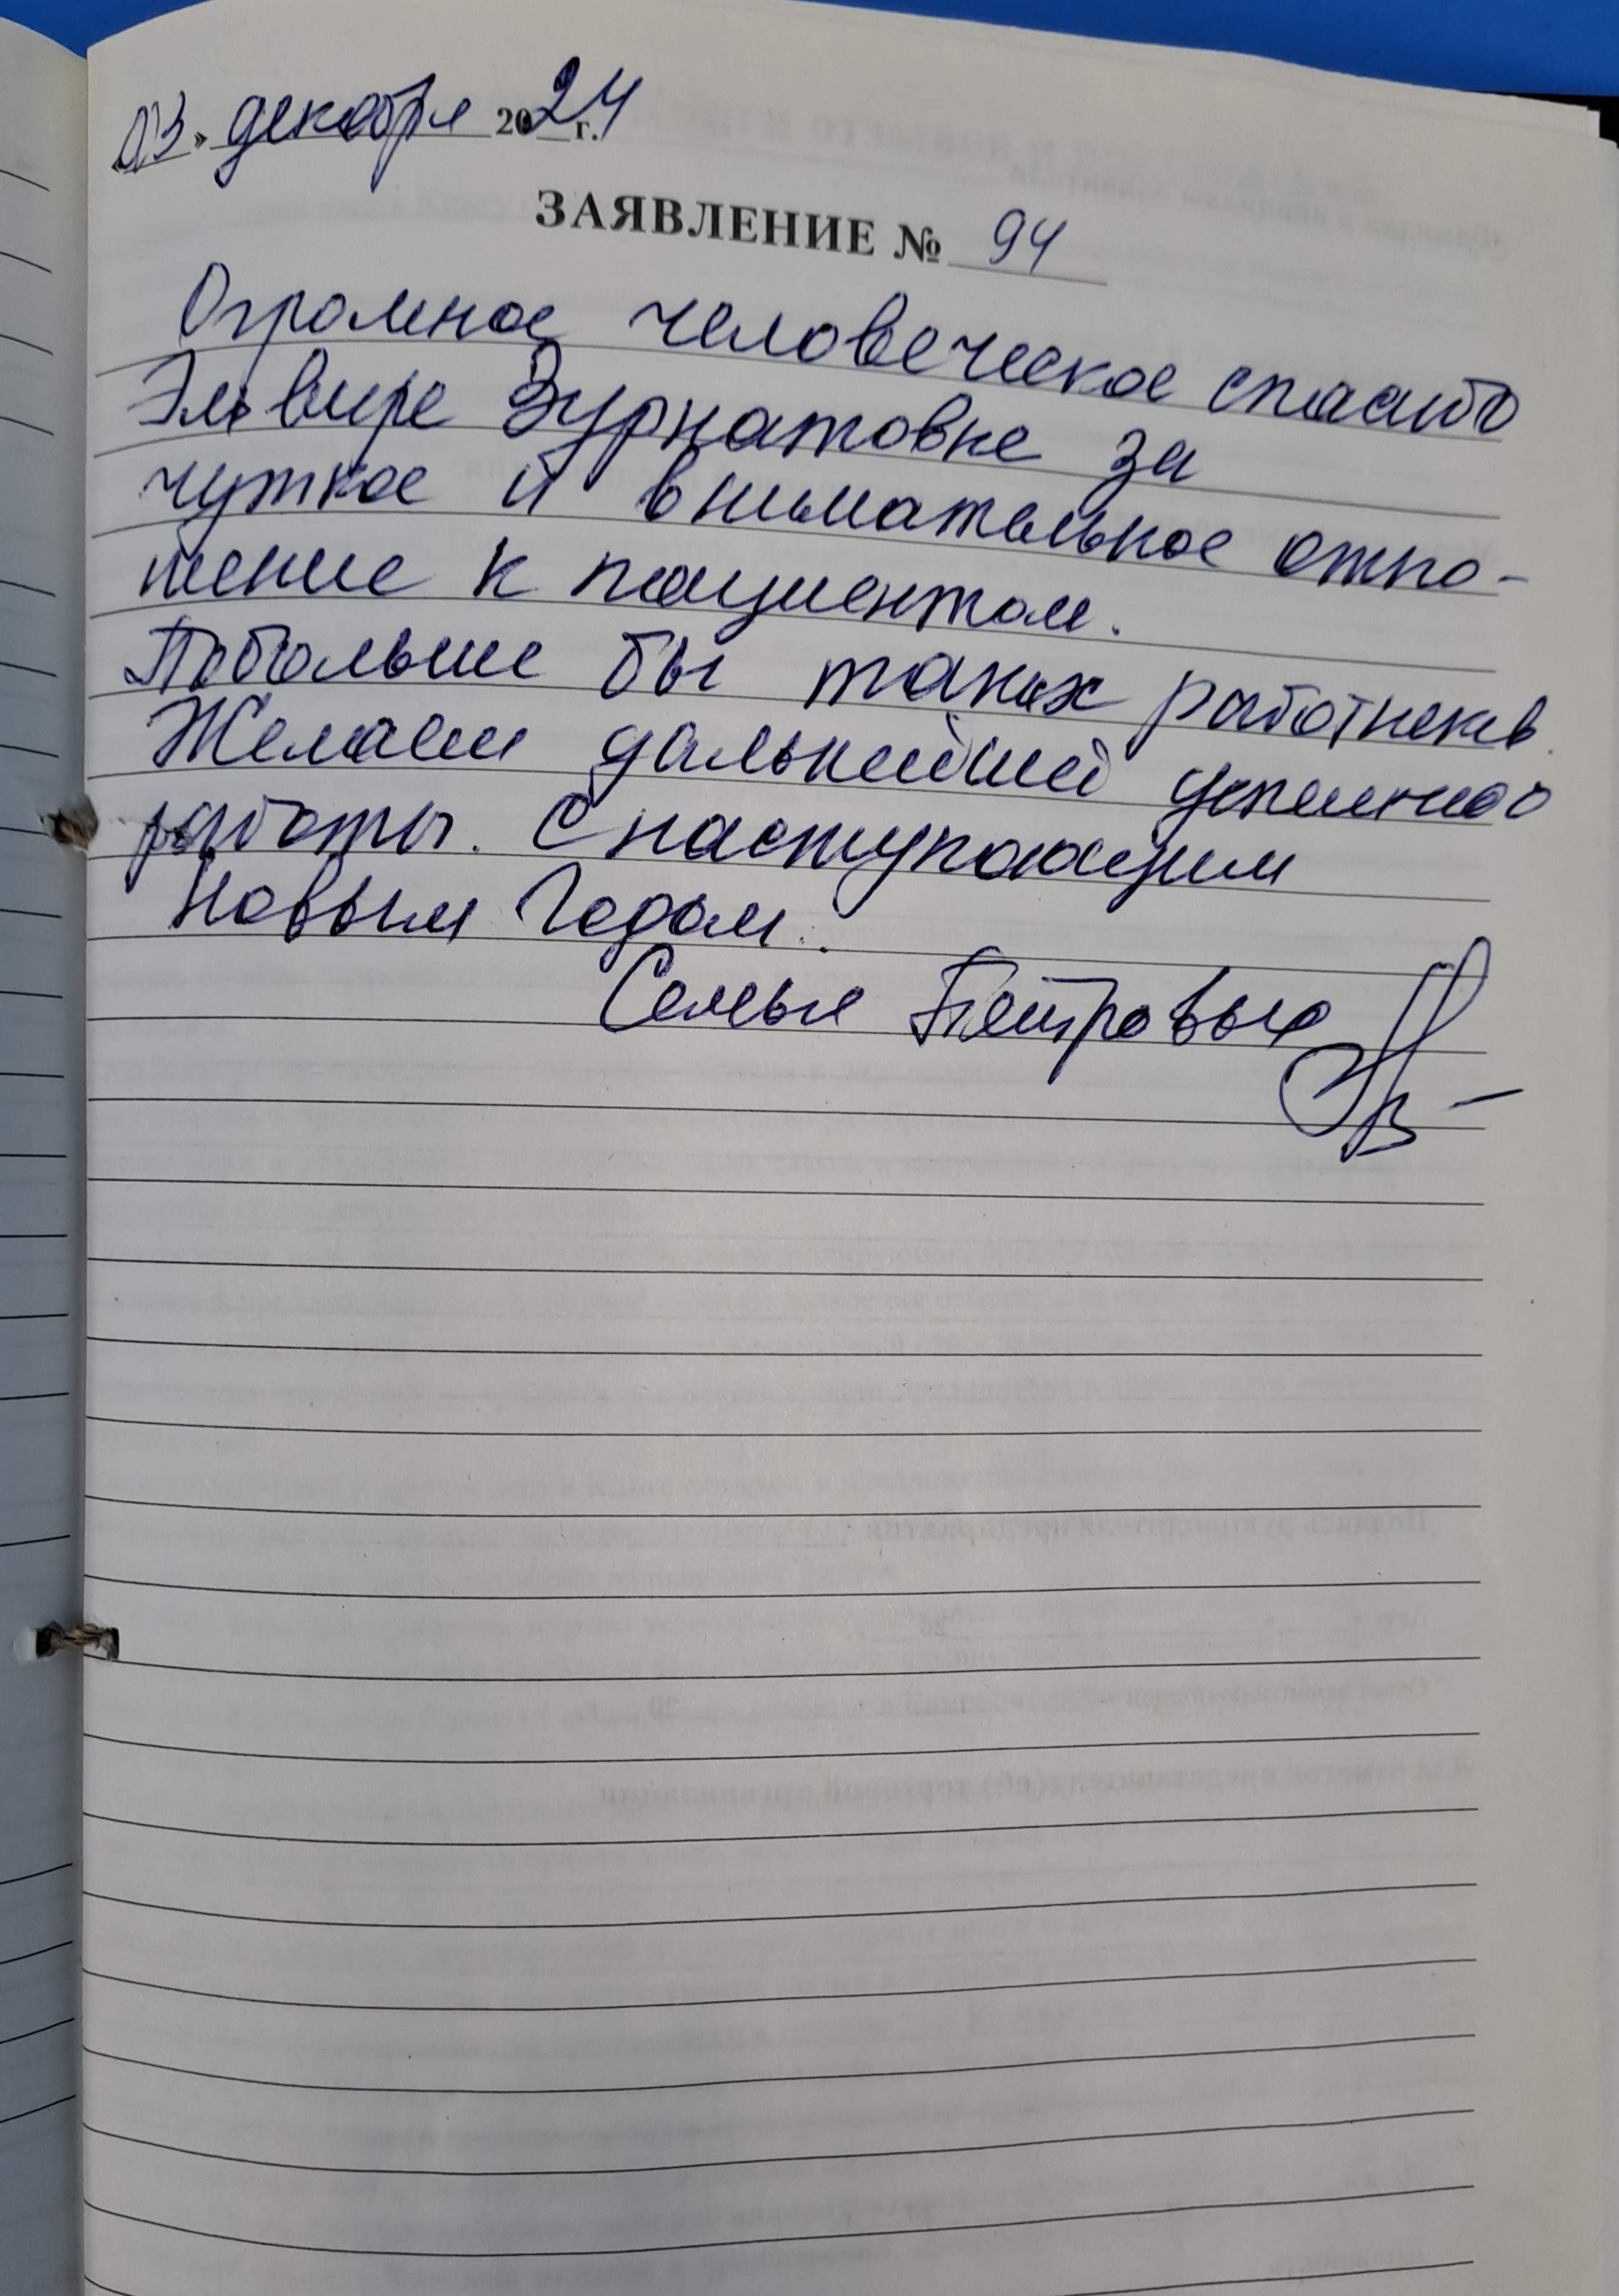 «03» декабря 2024 г.
ЗАЯВЛЕНИЕ № 94
Огромное человеческое спасибо
Эльвире Зурнатовне за
чуткое и внимательное отно-
шение к пациентам.
Побольше бы таких работников.
Желаем дальнейшей успешной
работы. С наступающим
Новым Годом.
Семья Петровых